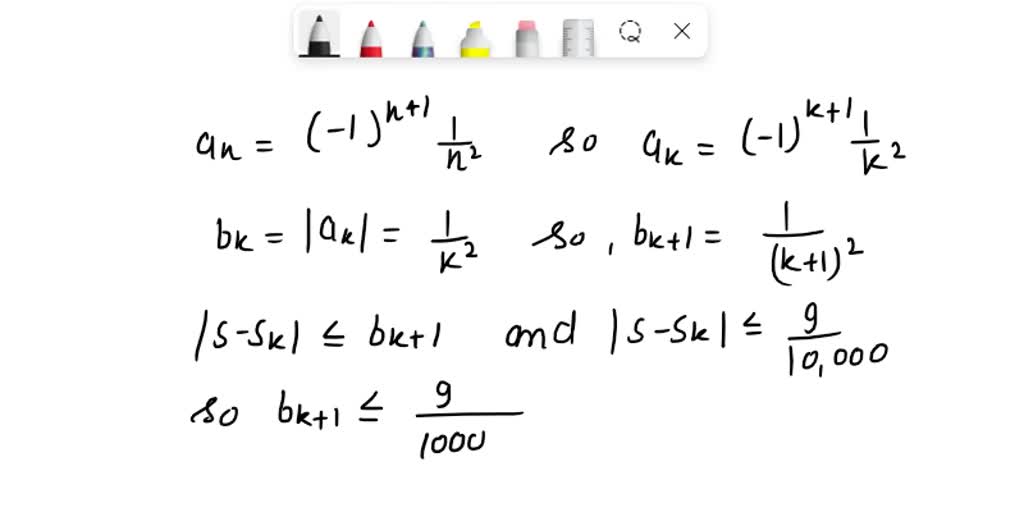 an = (-1)^{n+1} \frac{1}{n^2} so ak = (-1)^{k+1} \frac{1}{k^2}
bk = |ak| = \frac{1}{k^2} so, bk+1 = \frac{1}{(k+1)^2}
|s-sk| ≤ bk+1 and |s-sk| ≤ \frac{9}{10,000}
so bk+1 ≤ \frac{9}{1000}